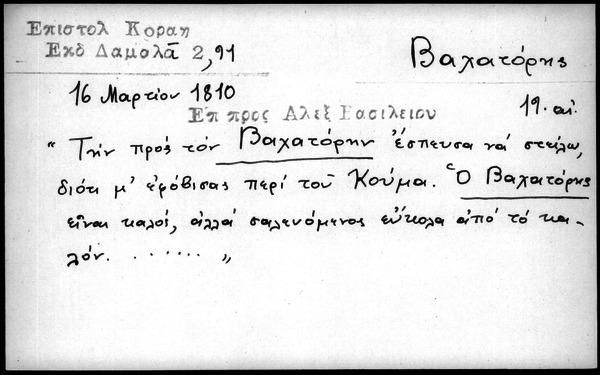 Επιστολ Κοραη
Εκδ Δαμαλᾶ 2,91
Βαχατόρης
16 Μαρτίου 1810
Επ προς Αλεξ Βασιλειου
19. αἰ.
"Τήν πρός τόν Βαχατόρην ἔσπευσα νά στείλω,
διότι μ' ἐφόβισας περί τοῦ Κούμα. Ὁ Βαχατόρης
εἶναι καλός, ἀλλά σαλευόμενος εὔκολα ἀπό τό κα-
λόν. ......"